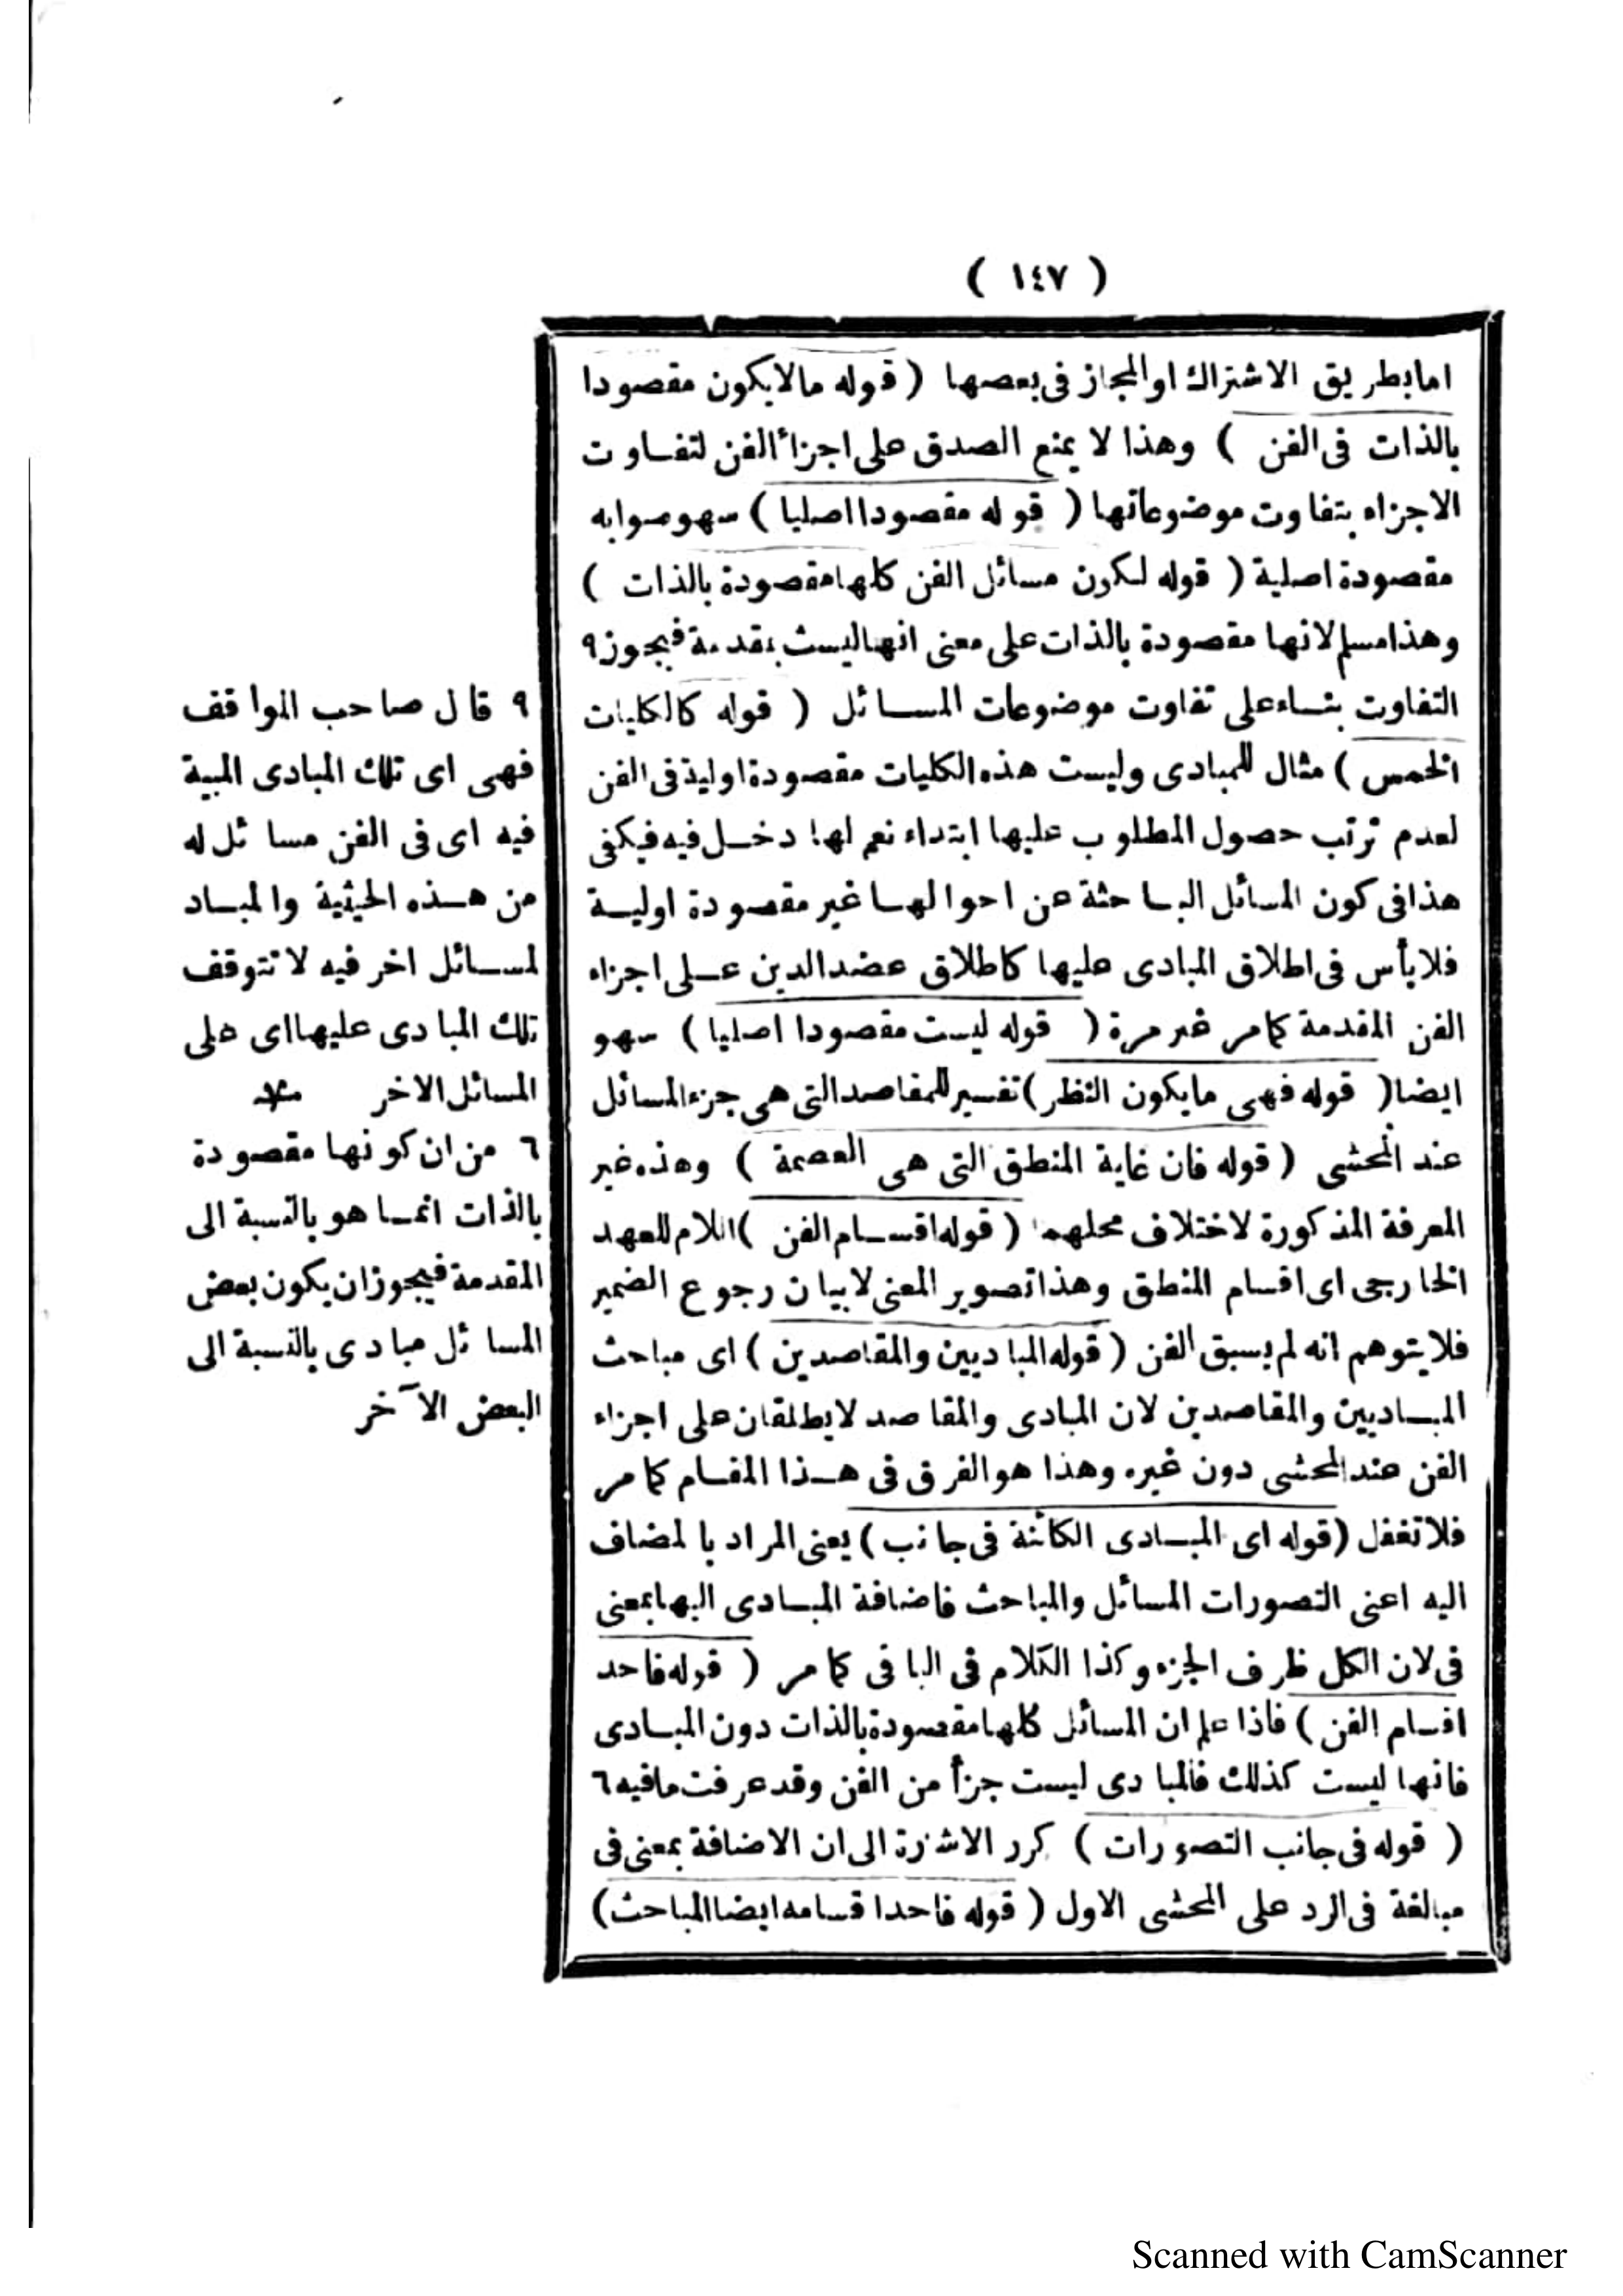 ( ١٤٧ )
اما بطريق الاشتراك او المجاز فى بعضها ( قوله ما لايكون مقصودا
بالذات فى الفن ) وهذا لا يمنع الصدق على اجزاء الفن لتفاوت
الاجزاء بتفاوت موضوعاتها ( قوله مقصودا اصليا ) سهو صوابه
مقصودة اصلية ( قوله لكون مسائل الفن كلها مقصودة بالذات )
وهذا مسلم لانها مقصودة بالذات على معنى انها ليست بمقدمة فيجوز ٩
التفاوت بناء على تفاوت موضوعات المسائل ( قوله كالكليات
الخمس ) مثال للمبادى وليست هذه الكليات مقصودة اولية فى الفن
لعدم ترتب حصول المطلوب عليها ابتداء نعم لها دخل فيه فيكفى
هذا فى كون المسائل الباحثة عن احوالها غير مقصودة اولية
فلا بأس فى اطلاق المبادى عليها كاطلاق عضد الدين على اجزاء
الفن المقدمة كما مر غير مرة ( قوله ليست مقصودا اصليا ) سهو
ايضا ( قوله فهى ما يكون النظر ) تفسير للمقاصد التى هى جزء المسائل
عند المحشى ( قوله فان غاية المنطق التى هى العصمة ) وهذه غير
المعرفة المذكورة لاختلاف محلهما ( قوله اقسام الفن ) اللام للعهد
الخارجى اى اقسام المنطق وهذا تصوير المعنى لا بيان رجوع الضمير
فلا يتوهم انه لم يسبق الفن ( قوله المباديين والمقاصدين ) اى مباحث
المباديين والمقاصدين لان المبادى والمقاصد لا يطلقان على اجزاء
الفن عند المحشى دون غيره وهذا هو الفرق فى هذا المقام كما مر
فلا تغفل ( قوله اى المبادى الكائنة فى جانب ) يعنى المراد بالمضاف
اليه اعنى التصورات المسائل والمباحث فاضافة المبادى اليها بمعنى
فى لان الكل ظرف الجزء وكذا الكلام فى الباقى كما مر ( قوله فاحد
اقسام الفن ) فاذا علم ان المسائل كلها مقصودة بالذات دون المبادى
فانها ليست كذلك فالمبادى ليست جزأ من الفن وقد عرفت ما فيه ٦
( قوله فى جانب التصورات ) كرر الاشارة الى ان الاضافة بمعنى فى
مبالغة فى الرد على المحشى الاول ( قوله فاحد اقسامه ايضا المباحث )
٩ قال صاحب المواقف
فهى اى تلك المبادى المبية
فيه اى فى الفن مسائل له
من هذه الحيثية والمباد
لمسائل اخر فيه لا تتوقف
تلك المبادى عليها اى على
المسائل الاخر
٦ من ان كونها مقصودة
بالذات انما هو بالنسبة الى
المقدمة فيجوز ان يكون بعض
المسائل مبادى بالنسبة الى
البعض الآخر
Scanned with CamScanner